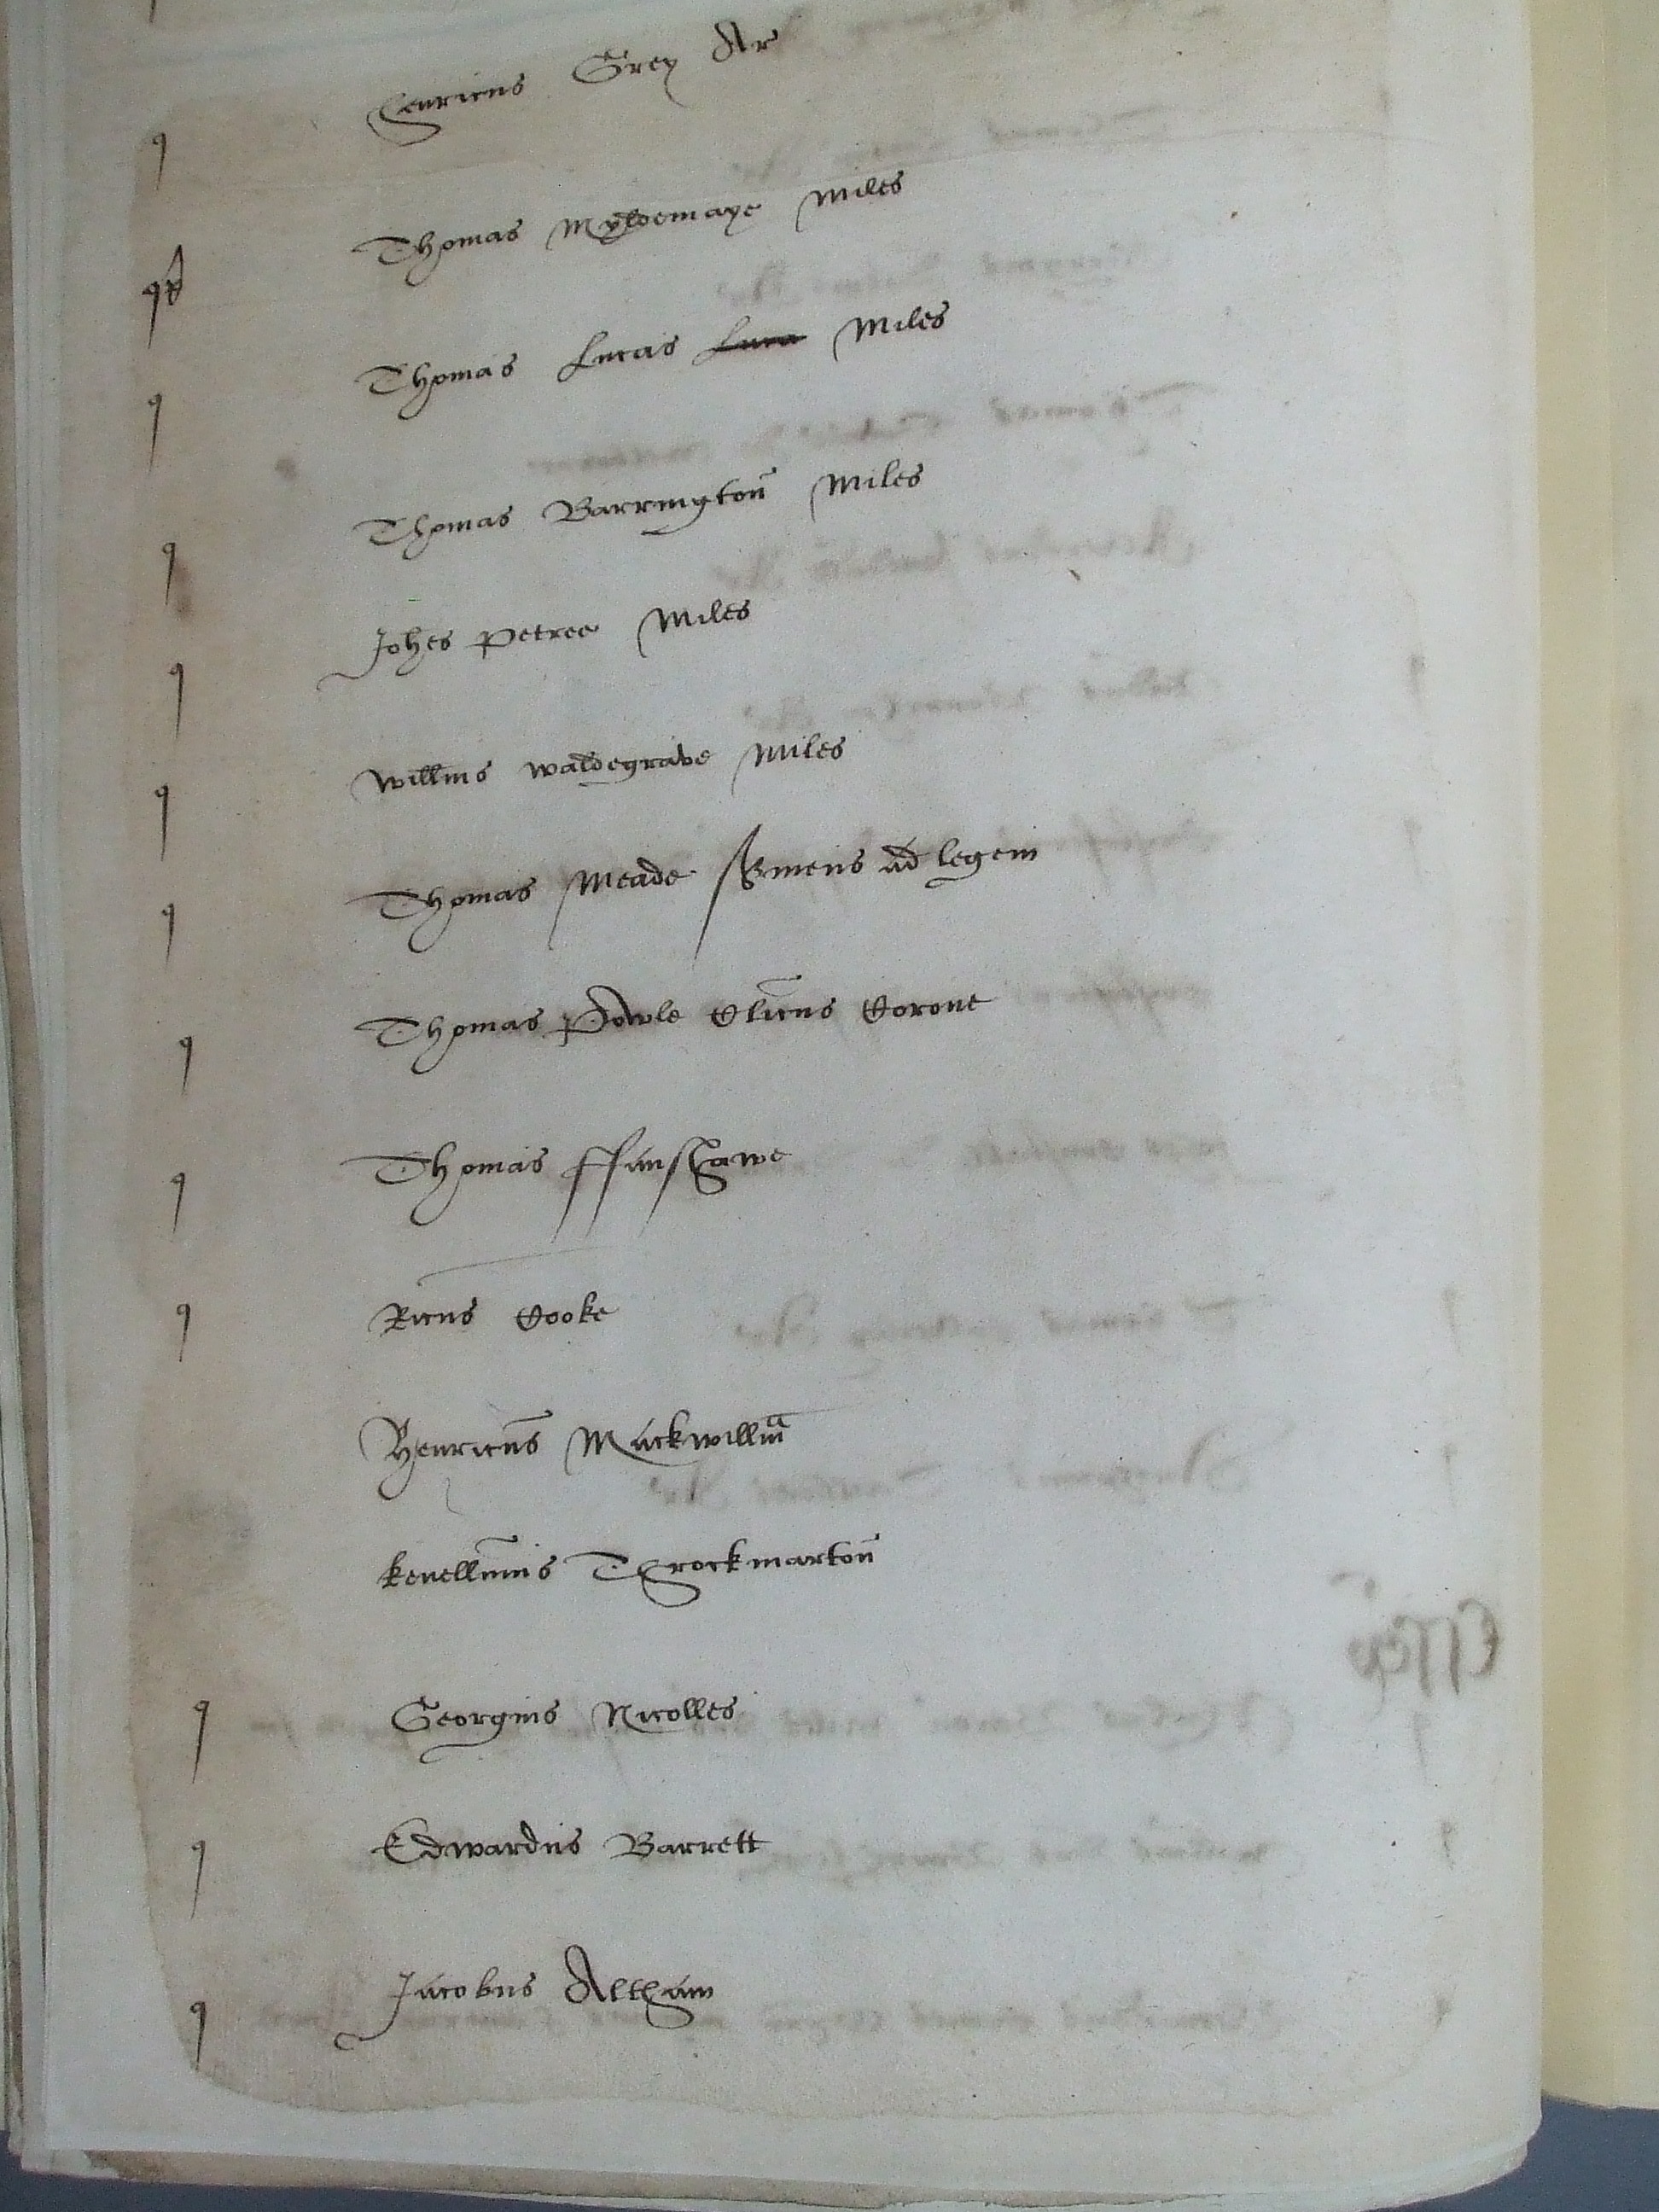 Henricus Grey Ar
Thomas Myldemaye Miles
Thomas Lucas Luca Miles
Thomas Barrington Miles
Johes Petree Miles
Willms Waldegrave Miles
Thomas Meade ad legem
Thomas Powle Clicus Corone
Thomas ffanshawe
Ricus Cooke
Henricus Mackwillm
Kenellmus Throckmarton
Georgius Nicolles
Edwardus Barrett
Jacobus Altham